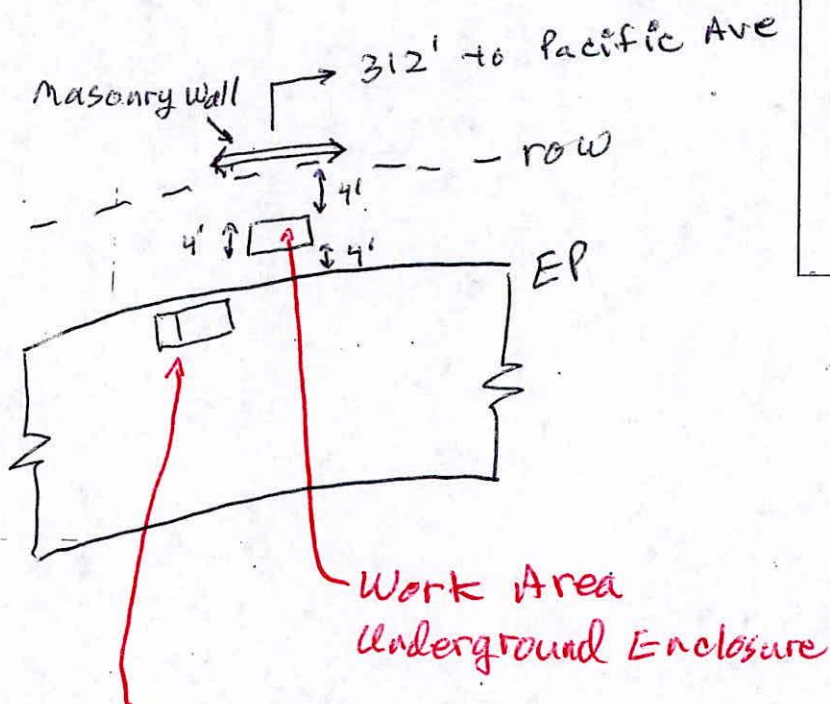 312' to Pacific Ave
Masonry Wall
row
4'
4'
4'
EP
Work Area
Underground Enclosure